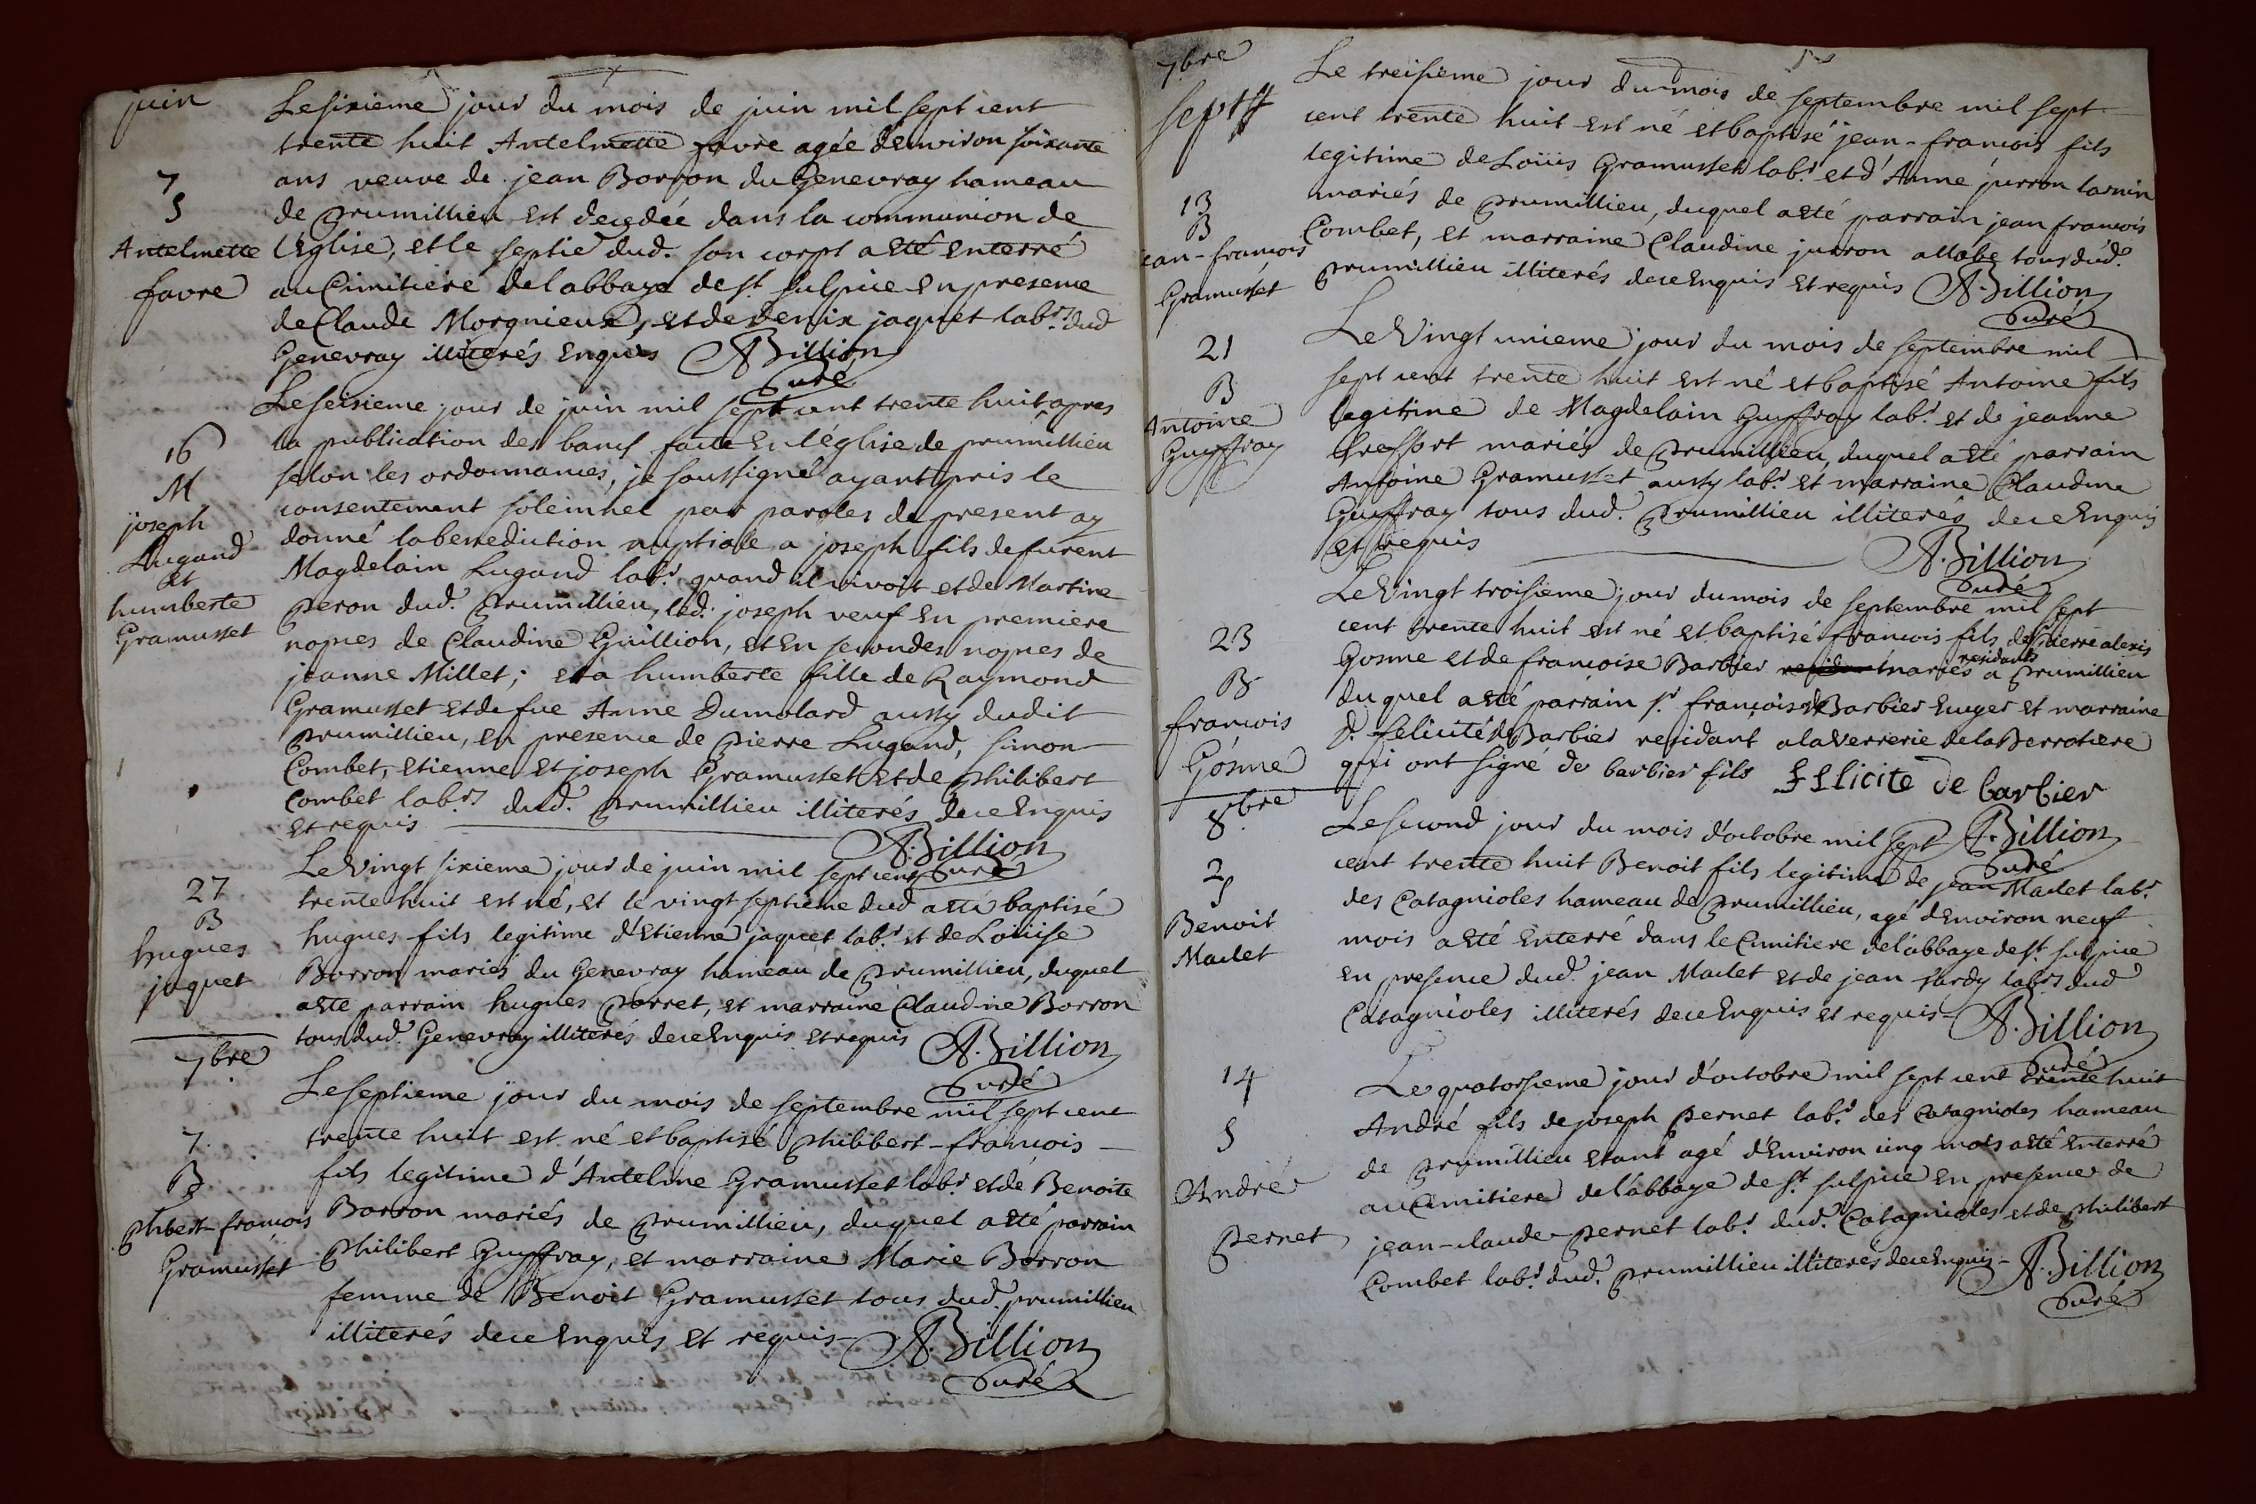 juin
Le sixieme jour du mois de juin mil sept cent
trente huit Antelmette favre agée d'environ soixante
7
S
Antelmette
favre
ans veuve de jean Borron du Genevray hameau
de prumillieu est decedée dans la communion de
l'Eglise, et le septie dud. son corps a eté enterré
au Cimitiére de l'abbaye de st. sulpice en presence
de Claude Morgnieux, et de denix jaquet labrs dud
Genevray illiterés enquis A. Billion
Curé
Le seisieme jour de juin mil sept cent trente huit apres
la publication des bancs faite en l'église de prumillieu
16
M
joseph
Lugand
et
humberte
Gramusset
selon les ordonnances, je soussigné ayant pris le
consentement solemnel par paroles de present ay
donné la benediction nuptiale a joseph fils de furent
Magdelain Lugand labr. quand il vivoit et de Martine
peron dud. prumillieu, led. joseph veuf en premiere
nopces de Claudine Guillion, et en secondes nopces de
jeanne Millet; et a humberte fille de Raymond
Gramusset et de fue Anne Dumolard aussy dudit
prumillieu, en presence de Pierre Lugand, simon
Combet, etienne et joseph Gramusset et de philibert
Combet labrs dud. prumillieu illiterés de ce enquis
et requis
A. Billion
Curé
Le vingt sixieme jour de juin mil sept cent
27
B
hugues
jaquet
trente huit est né, et le vingt septieme dud a eté baptisé
hugues fils legitime d'etienne jaquet labr. et de Loüise
Borron mariés du Genevray hameau de prumillieu, duquel
a eté parrain hugues perret, et marraine Claudine Borron
tous dud. Genevray illiterés de ce enquis et requis A. Billion
Curé
7bre
Le septieme jour du mois de septembre mil sept cent
7.
B
phbert-francois
Gramusset
trente huit est né et baptisé philibert-francois
fils legitime d'Antelme Gramusset labr. et de Benoite
Borron mariés de prumillieu, duquel a eté parrain
philibert Guyffray, et marraine Marie Borron
femme de Benoit Gramusset tous dud. prumillieu
illiterés de ce enquis et requis A. Billion
Curé
7bre
Le treisieme jour du mois de septembre mil sept
cent trente huit est né et baptisé jean-francois fils
13
B
jean-francois
Gramusset
legitime de Loüis Gramusset labr. et d'Anne jurron
mariés de prumillieu, duquel a eté parrain jean francois
Combet, et marraine Claudine jurron tous dud.
prumillieu illiterés de ce enquis et requis A. Billion
Curé
21
B
Antoine
Guyffray
Le vingt unieme jour du mois de septembre mil
sept cent trente huit est né et baptisé Antoine fils
legitime de Magdelain Guyffray labr. et de jeanne
mariés de prumillieu, duquel a eté parrain
Antoine Gramusset aussy labr. et marraine Claudine
Guyffray tous dud. prumillieu illiterés de ce enquis
et requis
A. Billion
Curé
23
B
francois
Gósme
Le vingt troisieme jour du mois de septembre mil sept
cent trente huit est né et baptisé francois fils de Pierre alexis
Gosme et de francoise Barbier mariés residants a prumillieu
du quel a eté parrain sr. francois de Barbier et marraine
d. felicité de Barbier residant a la verrerie de la
qui ont signé de barbier fils felicite de barbier
A. Billion
Curé
8bre
2
S
Benoit
Maclet
Le second jour du mois d'octobre mil sept
cent trente huit Benoit fils legitime de jean Maclet labr.
des Catagnioles hameau de prumillieu, agé d'environ neuf
mois a eté enterré dans le Cimitiere de l'abbaye de st. sulpice
en presence dud. jean Maclet et de jean tardy labrs dud
Catagnioles illiterés de ce enquis et requis A. Billion
Curé
14
S
André
pernet
Le quatorsieme jour d'octobre mil sept cent trente huit
André fils de joseph pernet labr. des Catagnioles hameau
de prumillieu etant agé d'environ cinq mois a eté enterré
au Cimitiere de l'abbaye de st. sulpice en presence de
jean-claude pernet labr. dud. Catagnioles et de philibert
Combet labr. dud. prumillieu illiterés de ce enquis A. Billion
Curé